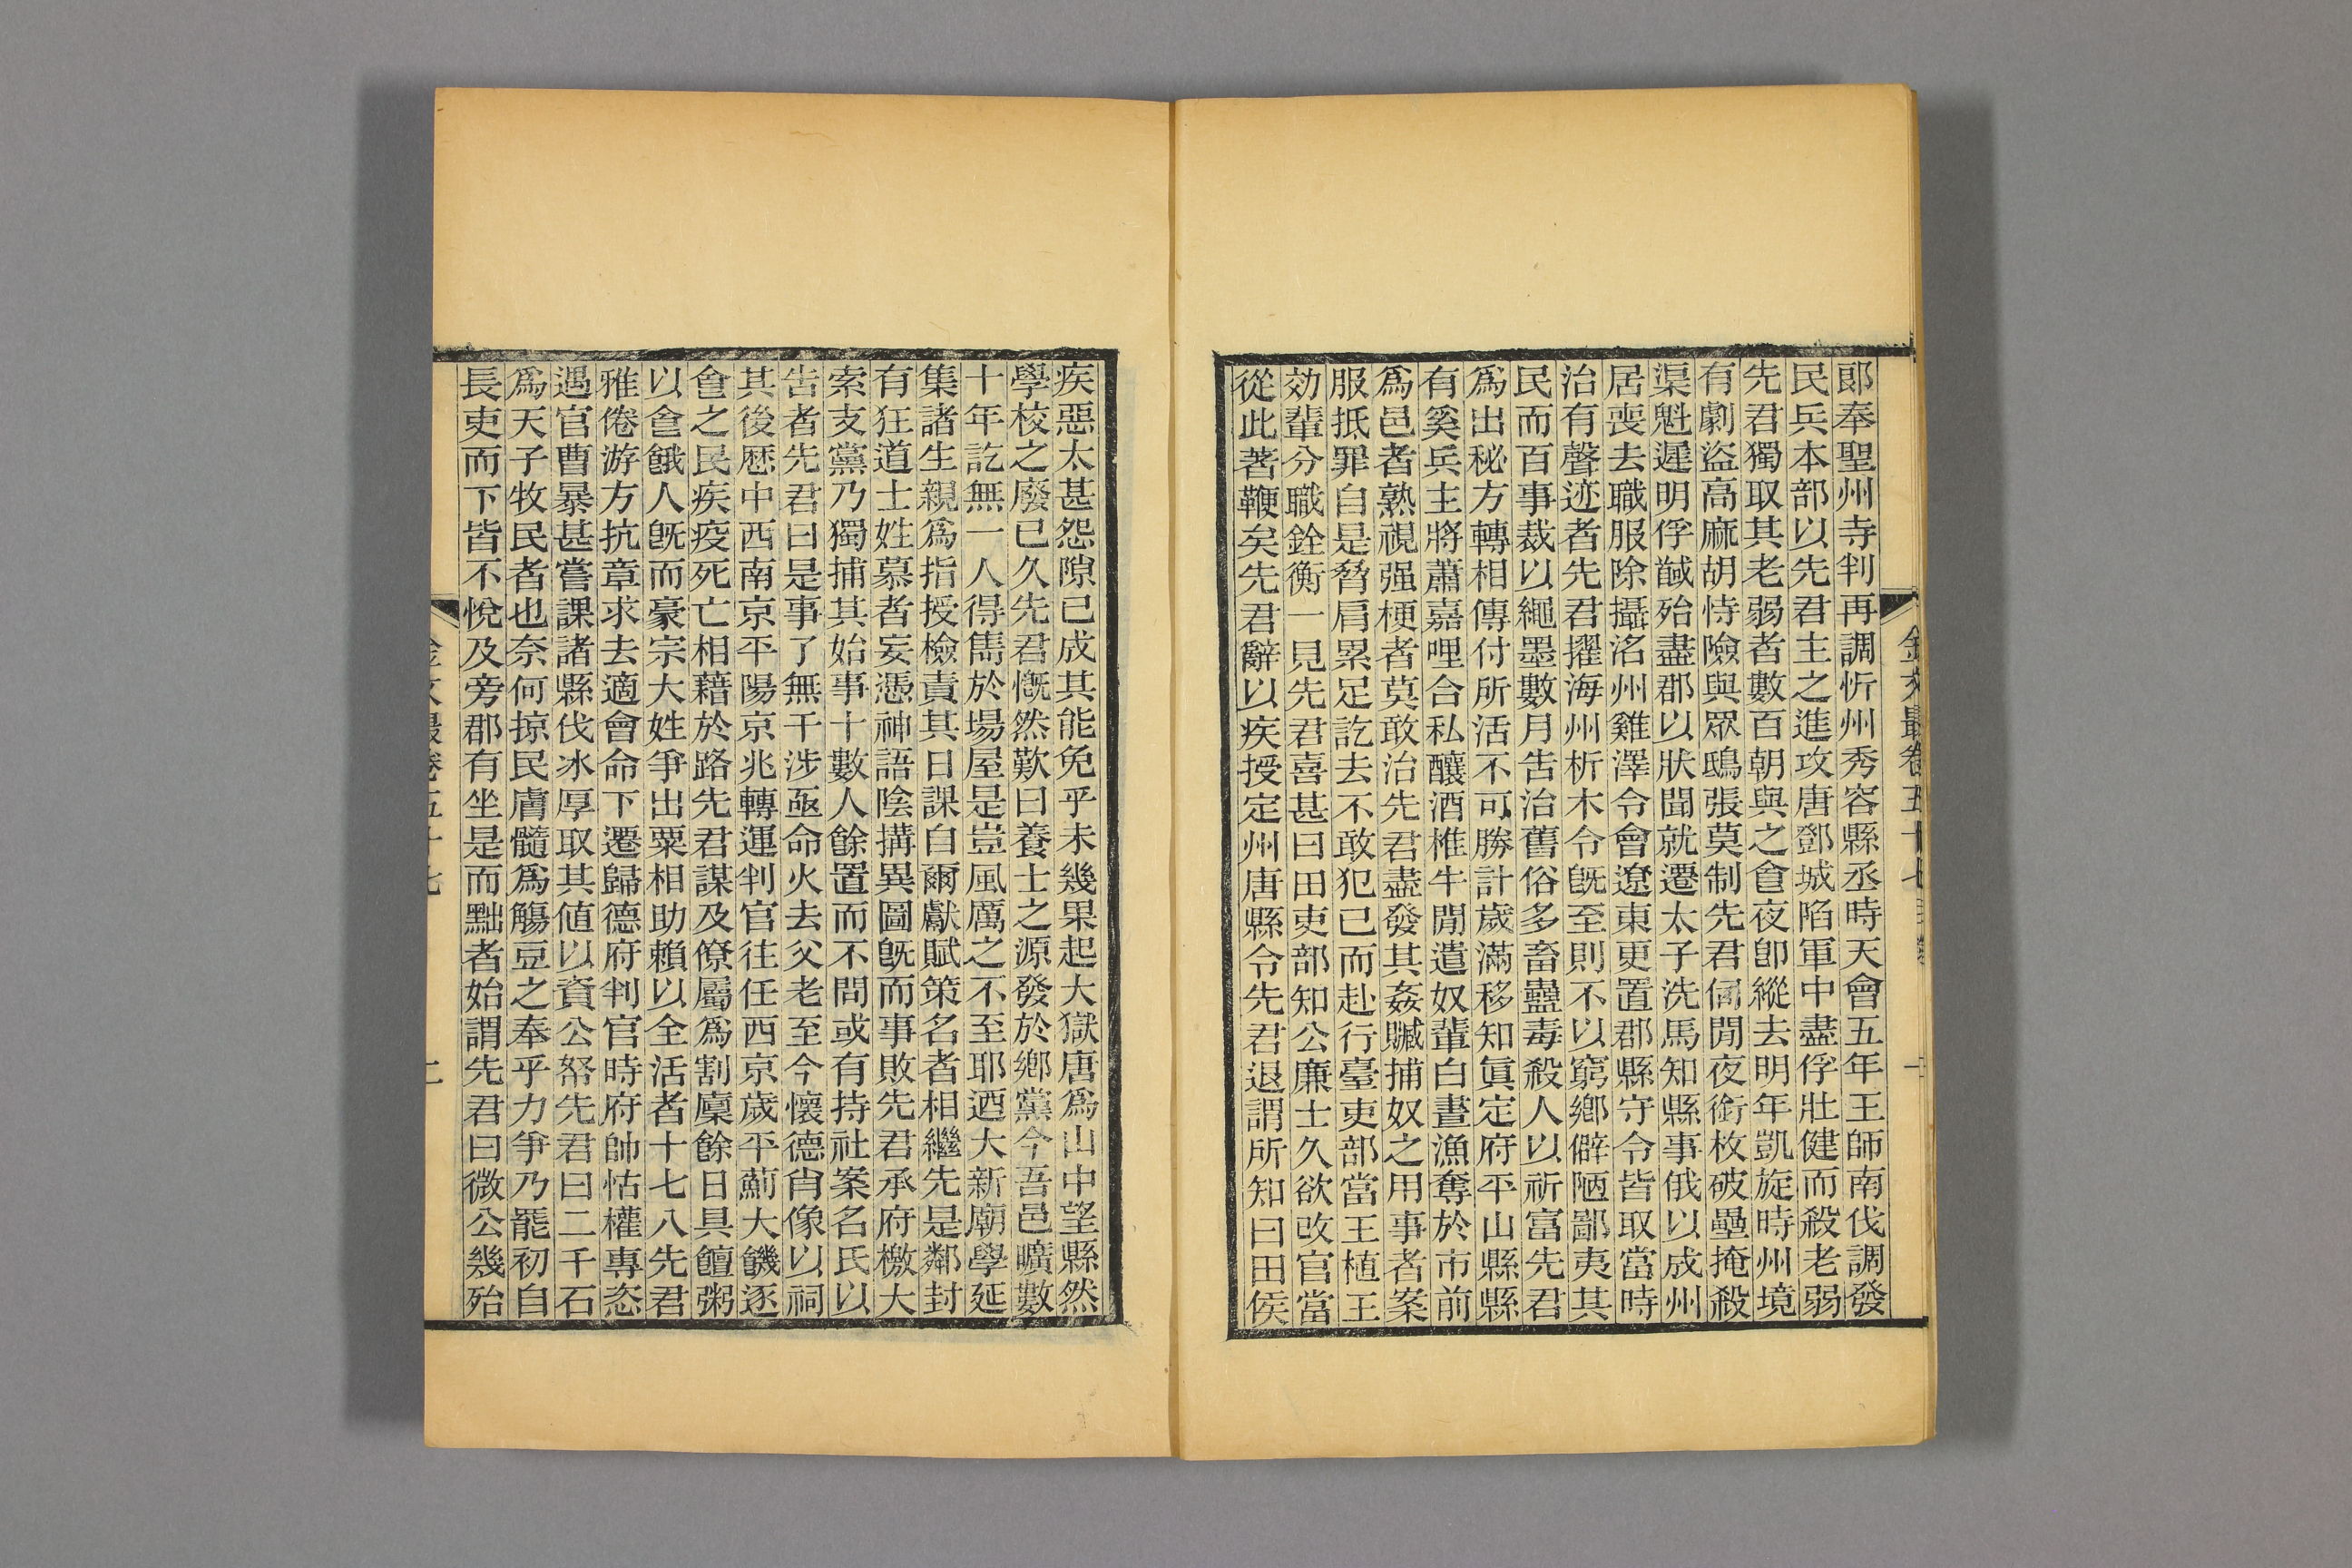 郞奉聖州寺判再調忻州秀容縣丞時天會五年王師南伐調發
民兵本部以先君主之進攻唐鄧城陷軍中盡俘壯健而殺老弱
先君獨取其老弱者數百朝與之食夜卽縱去明年凱旋時州境
有劇盜高麻胡恃險與眾鴟張莫制先君伺閒夜銜枚破壘掩殺
渠魁遲明俘馘殆盡郡以狀聞就遷太子洗馬知縣事俄以成州
居喪去職服除攝洺州雞澤令會遼東更置郡縣守令皆取當時
治有聲迹者先君擢海州析木令旣至則不以窮鄕僻陋鄙夷其
民而百事裁以繩墨數月告治舊俗多畜蠱毒殺人以祈富先君
爲出秘方轉相傳付所活不可勝計歲滿移知眞定府平山縣縣
有奚兵主將蕭嘉哩合私釀酒椎牛閒遣奴輩白晝漁奪於市前
爲邑者熟視强梗者莫敢治先君盡發其姦贓捕奴之用事者案
服抵罪自是脅肩累足訖去不敢犯已而赴行臺吏部當王植王
効輩分職銓衡一見先君喜甚曰田吏部知公廉士久欲改官當
從此著鞭矣先君辭以疾授定州唐縣令先君退謂所知曰田侯
金文最卷五十七
疾惡太甚怨隙已成其能免乎未幾果起大獄唐爲山中望縣然
學校之廢已久先君慨然歎曰養士之源發於鄕黨今吾邑曠數
十年訖無一人得雋於場屋是豈風厲之不至耶迺大新廟學延
集諸生親爲指授檢責其日課自爾獻賦策名者相繼先是鄰封
有狂道士姓慕者妄憑神語陰搆異圖旣而事敗先君承府檄大
索支黨乃獨捕其始事十數人餘置而不問或有持社案名氏以
告者先君曰是事了無干涉亟命火去父老至今懷德肖像以祠
其後歷中西南京平陽京兆轉運判官往任西京歲平薊大饑逐
食之民疾疫死亡相藉於路先君謀及僚屬爲割廩餘日具饘粥
以食餓人旣而豪宗大姓爭出粟相助賴以全活者十七八先君
雅倦游方抗章求去適會命下遷歸德府判官時府帥怙權專恣
遇官曹暴甚嘗課諸縣伐冰厚取其値以資公帑先君曰二千石
爲天子牧民者也奈何掠民膚髓爲觴豆之奉乎力爭乃罷初自
長吏而下皆不悅及旁郡有坐是而黜者始謂先君曰微公幾殆
金文最卷五十七